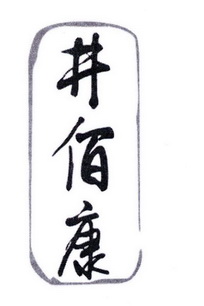 井佰康